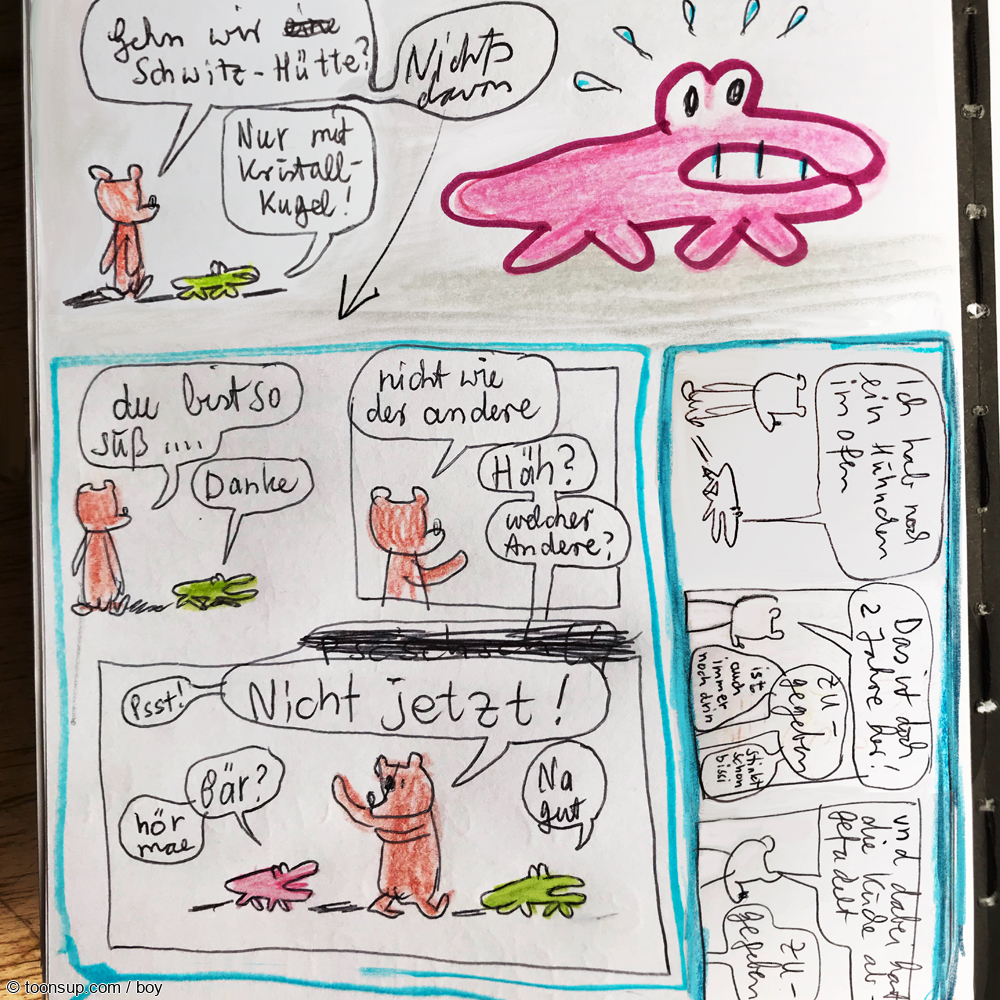 Gehn wir
Schwitz-Hütte?
Nichts
davon
Nur mit
Kristall-
Kugel!
du bist so
süß ....
Danke
nicht wie
der andere
Häh?
welcher
Andere?
Psst!
Nicht jetzt!
Bär?
hör
mal
Na
gut
Ich hab noch
ein Hühnchen
im Ofen
Das ist doch
2 Jahre her!
zu-
gegeben
ist
auch
immer
noch drin
stinkt
schon
bissi
und dabei hat
die Kinde ab-
gefadelt
zu-
gegeben
© toonsup.com / boy